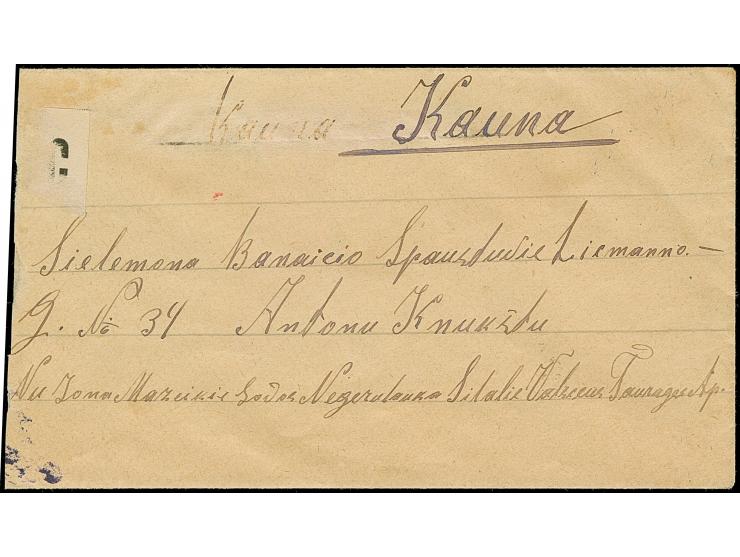 Kauna Kauna
?
Sielemona Banaicio Spaustuvie Liemanno.-
G. № 34 Antonu Knukstu
Nu Jona Mazeikie Sodos Negerulauka Silalie Tauragės Ap.